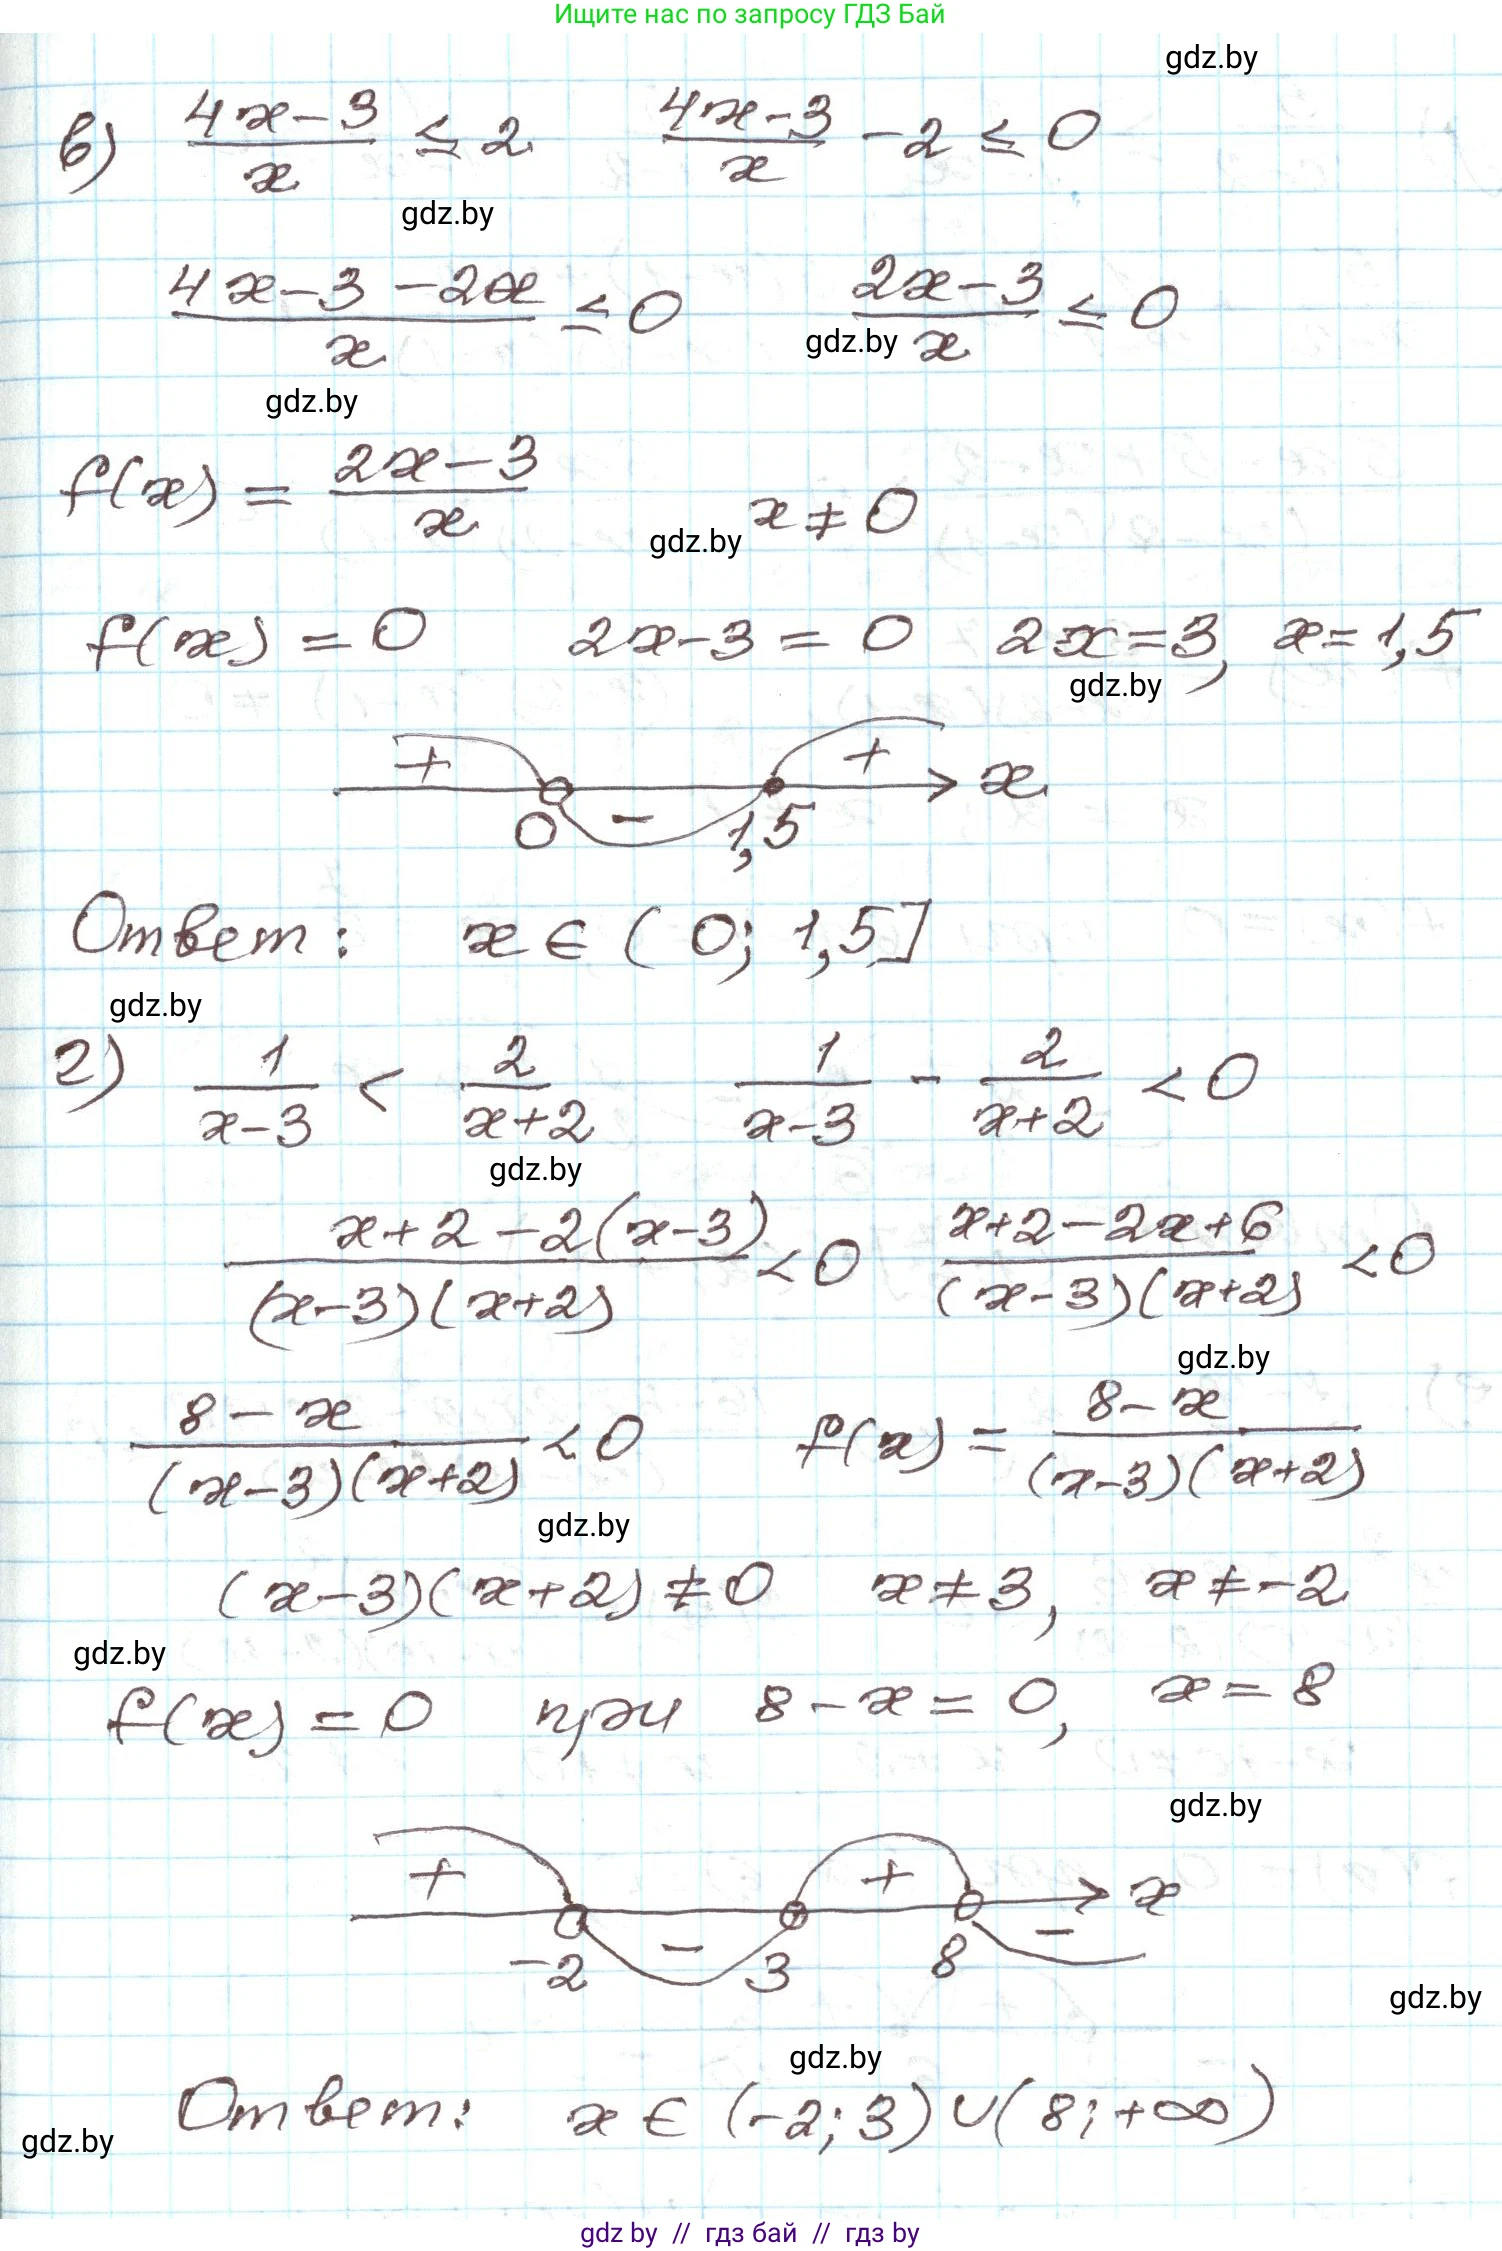 Ищите нас по запросу ГДЗ Бай
gdz.by
в) (4x-3)/x ≤ 2 (4x-3)/x - 2 ≤ 0
gdz.by
(4x-3-2x)/x ≤ 0 (2x-3)/x ≤ 0
gdz.by
gdz.by
f(x) = (2x-3)/x x ≠ 0
gdz.by
f(x) = 0 2x-3 = 0 2x=3, x=1,5
gdz.by
+ - + x
0 1,5
Ответ: x ∈ (0; 1,5]
gdz.by
г) 1/(x-3) < 2/(x+2) 1/(x-3) - 2/(x+2) < 0
gdz.by
(x+2-2(x-3))/((x-3)(x+2)) < 0 (x+2-2x+6)/((x-3)(x+2)) < 0
gdz.by
(8-x)/((x-3)(x+2)) < 0 f(x) = (8-x)/((x-3)(x+2))
gdz.by
(x-3)(x+2) ≠ 0 x ≠ 3, x ≠ -2
gdz.by
f(x) = 0 при 8-x = 0, x = 8
gdz.by
+ - + - x
-2 3 8
gdz.by
gdz.by
Ответ: x ∈ (-2; 3) ∪ (8; +∞)
gdz.by
gdz by // гдз бай // гдз by